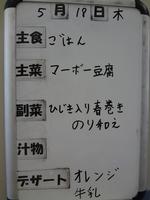 5月19日木
主食 ごはん
主菜 マーボー豆腐
副菜 ひじき入り春巻き
のり和え
汁物
デザート オレンジ
牛乳